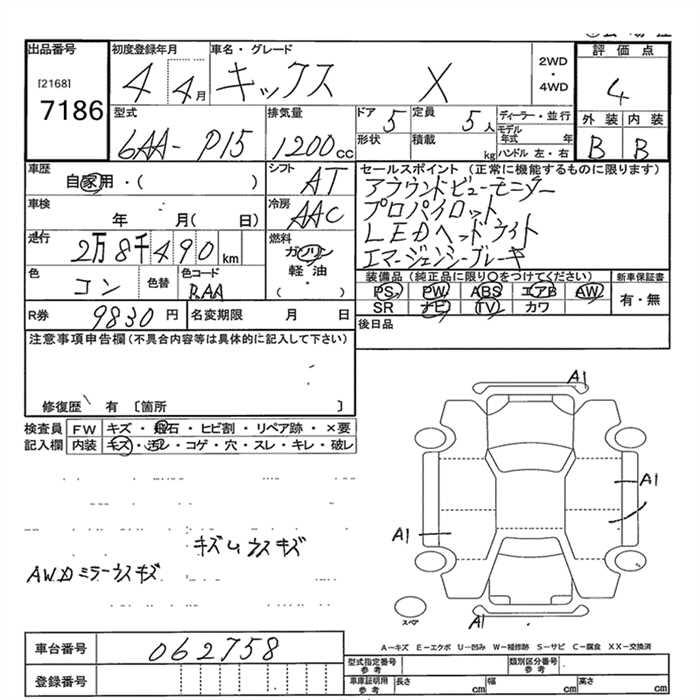 出品番号
[2168]
7186
初度登録年月
4 4月
車名・グレード
キックス X
2WD
・
4WD
評価点
4
外装 内装
B B
型式
6AA-P15
排気量
1200cc
ドア
5
形状
定員
5人
積載
kg
ディーラー・並行
モデル年式 年
ハンドル 左・右
車歴
自家用・( )
シフト
AT
車検
年 月( 日)
冷房
AAC
走行
2万8千490km
燃料
ガソリン
軽・油
( )
色
コン
色替
色コード
RAA
セールスポイント (正常に機能するものに限ります)
アラウンドビューモニター
プロパイロット
LEDヘッドライト
エマージェンシーブレーキ
装備品(純正品に限り○をつけてください)
PS PW ABS エアB AW
SR ナビ TV カワ
新車保証書
有・無
R券
9830円
名変期限 月 日
後日品
注意事項申告欄(不具合内容等は具体的に記入して下さい)
修復歴 有 〔箇所 〕
検査員
記入欄
FW キズ・飛石・ヒビ割・リペア跡・×要
内装 キズ・汚レ・コゲ・穴・スレ・キレ・破レ
A1
A1
A1
A1
キズムウスキズ
AWDミラーウスキズ
スペア
A-キズ E-エクボ U-凹み W-補修跡 S-サビ C-腐食 XX-交換済
車台番号
062758
登録番号
型式指定番号
参考
類別区分番号
参考
車庫証明用
参考
長さ cm
幅 cm
高さ cm